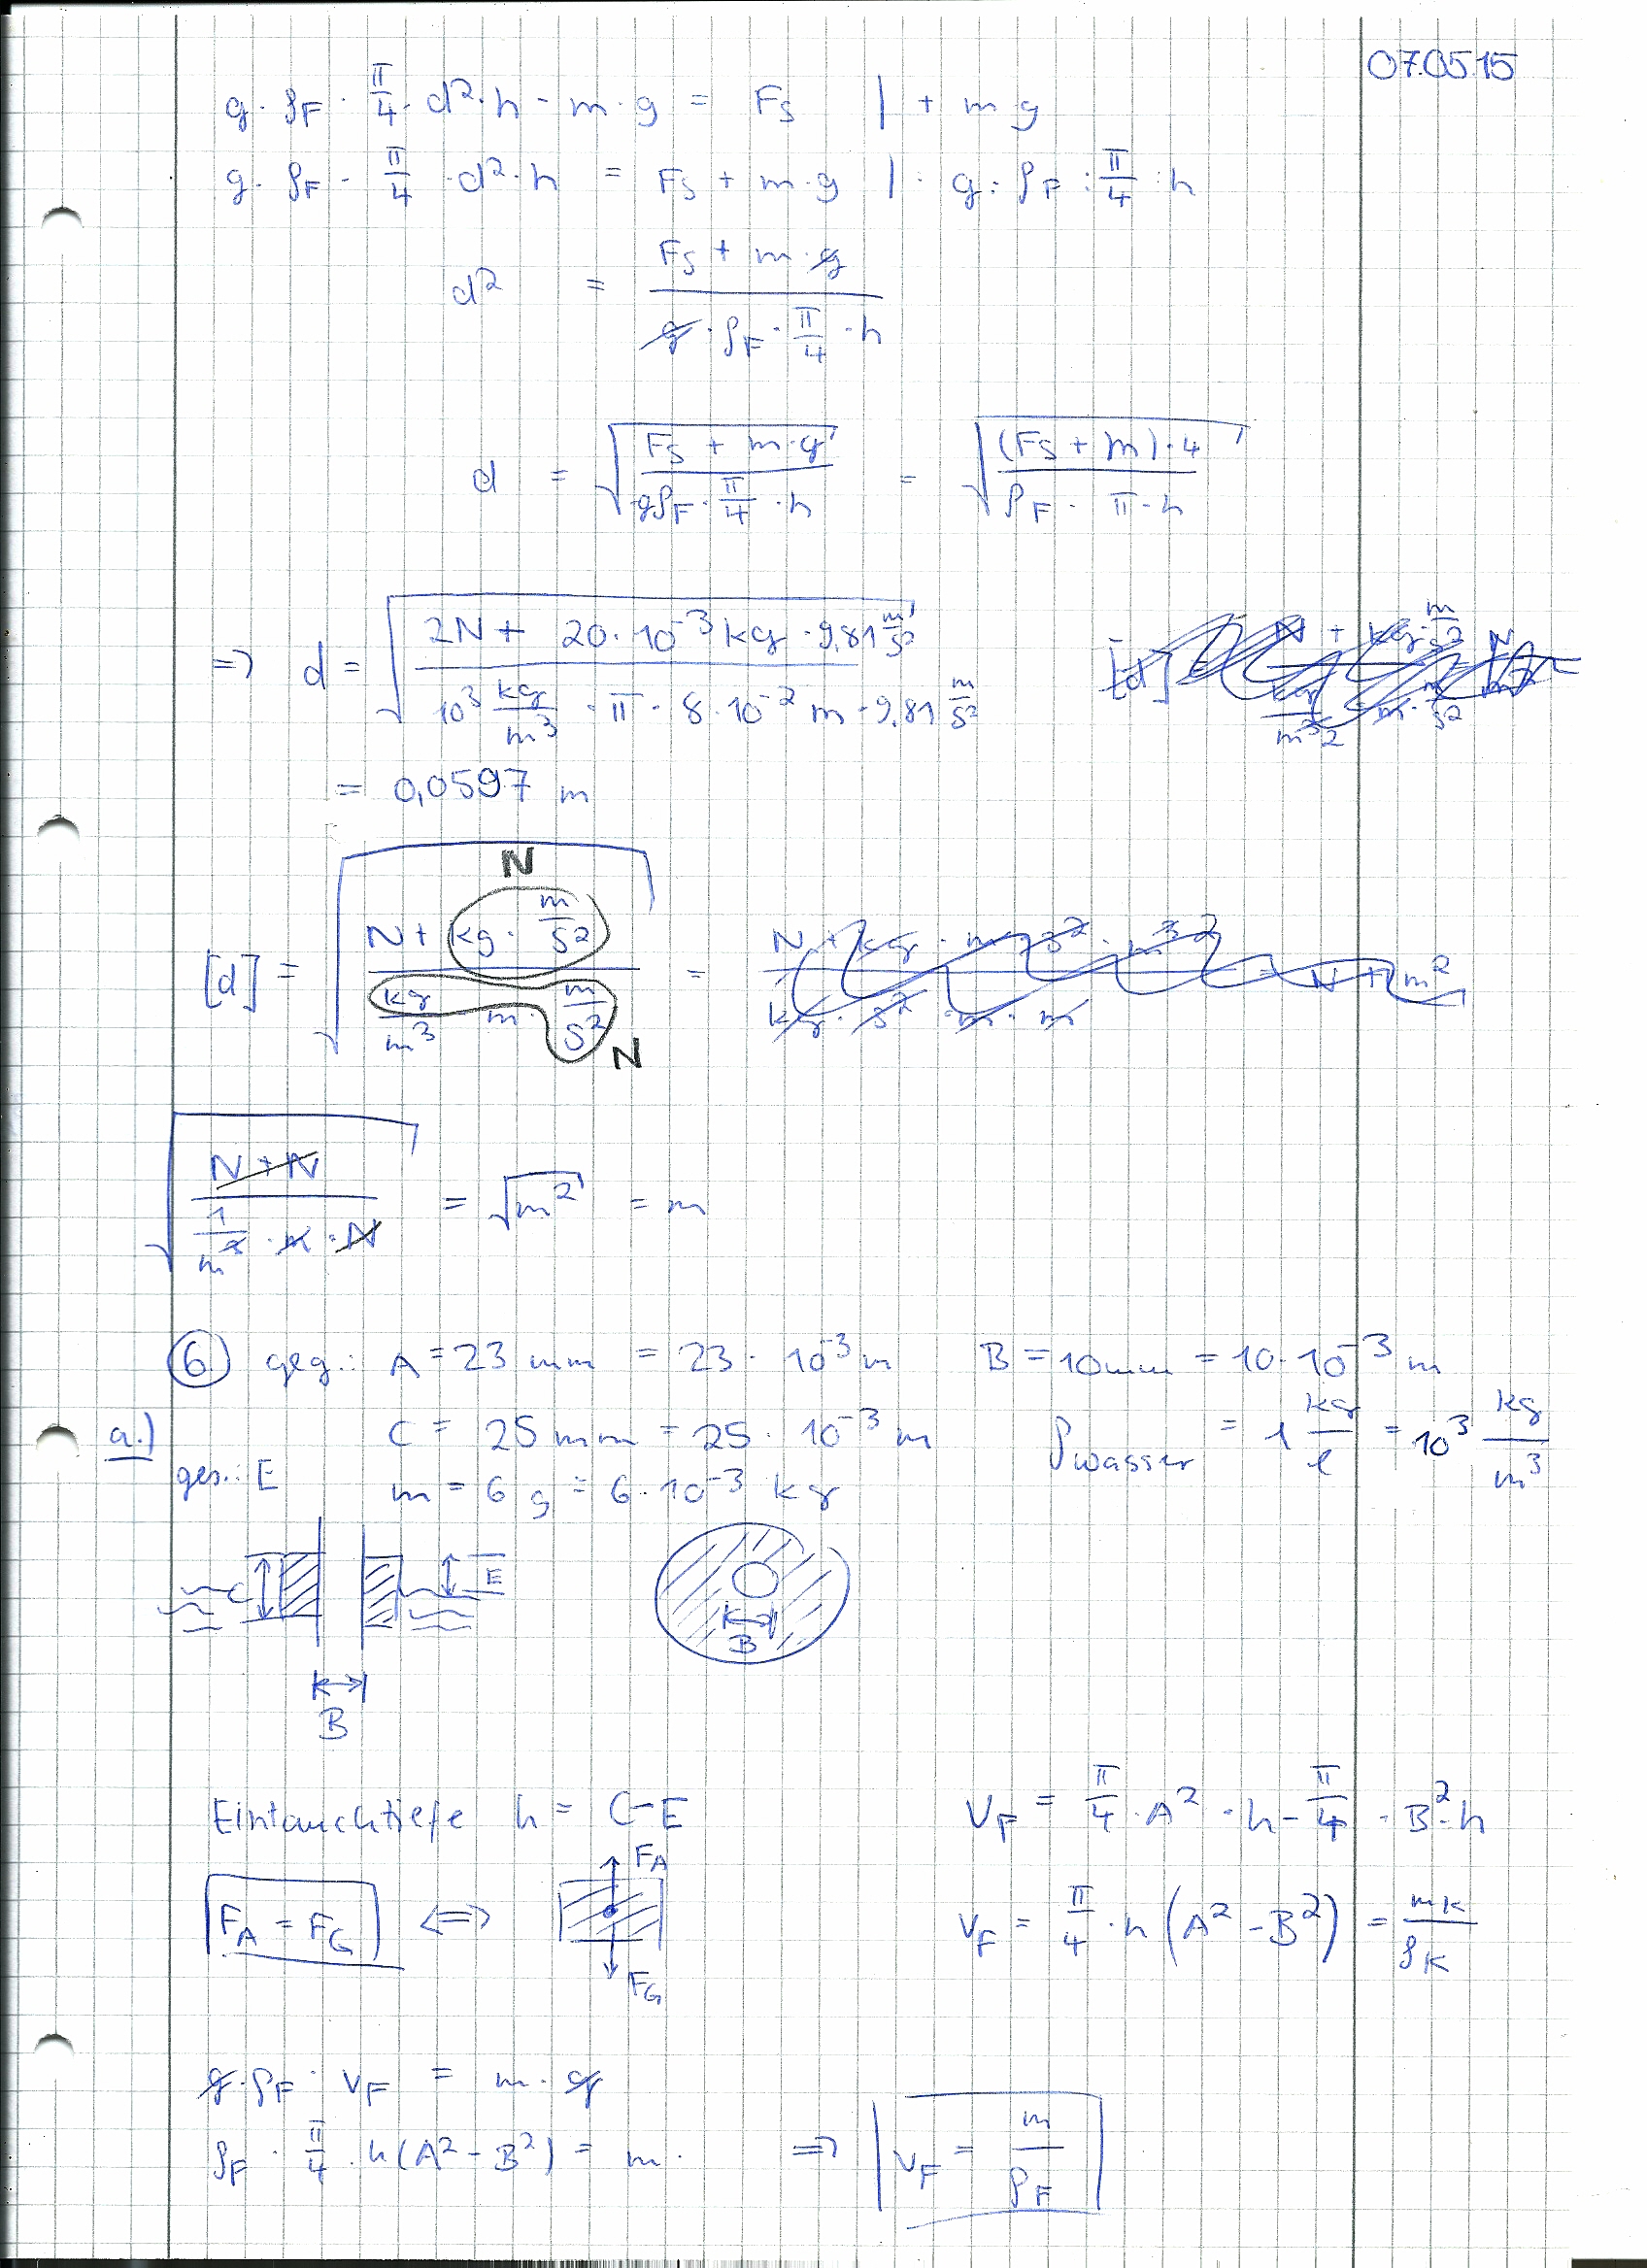 07.05.15
g · ρF · π/4 · d² · h - m · g = Fs | + m g
g · ρF · π/4 · d² · h = Fs + m · g | : g : ρF : π/4 : h
d² = (Fs + m · g) / (g · ρF · π/4 · h)
d = √((Fs + m · g) / (gρF · π/4 · h)) = √((Fs + m) · 4 / (ρF · π · h))
⇒ d = √((2N + 20 · 10⁻³ kg · 9,81 m/s²) / (10³ kg/m³ · π · 8 · 10⁻² m · 9,81 m/s²))
= 0,0597 m
N
[d] = √((N + kg · m/s²) / (kg/m³ · m · m/s²)) =
N
√((N + N) / (1/m³ · m · N)) = √m² = m
6.) geg.: A = 23 mm = 23 · 10⁻³ m B = 10 mm = 10 · 10⁻³ m
a.) C = 25 mm = 25 · 10⁻³ m ρwasser = 1 kg/l = 10³ kg/m³
ges.: E m = 6 g = 6 · 10⁻³ kg
C E
B
B
Eintauchtiefe h = C - E VF = π/4 · A² · h - π/4 · B² · h
FA
FA = FG ⇔ VF = π/4 · h (A² - B²) = mK/ρK
FG
g · ρF · VF = m · g
ρF · π/4 · h (A² - B²) = m. ⇒ VF = m/ρF